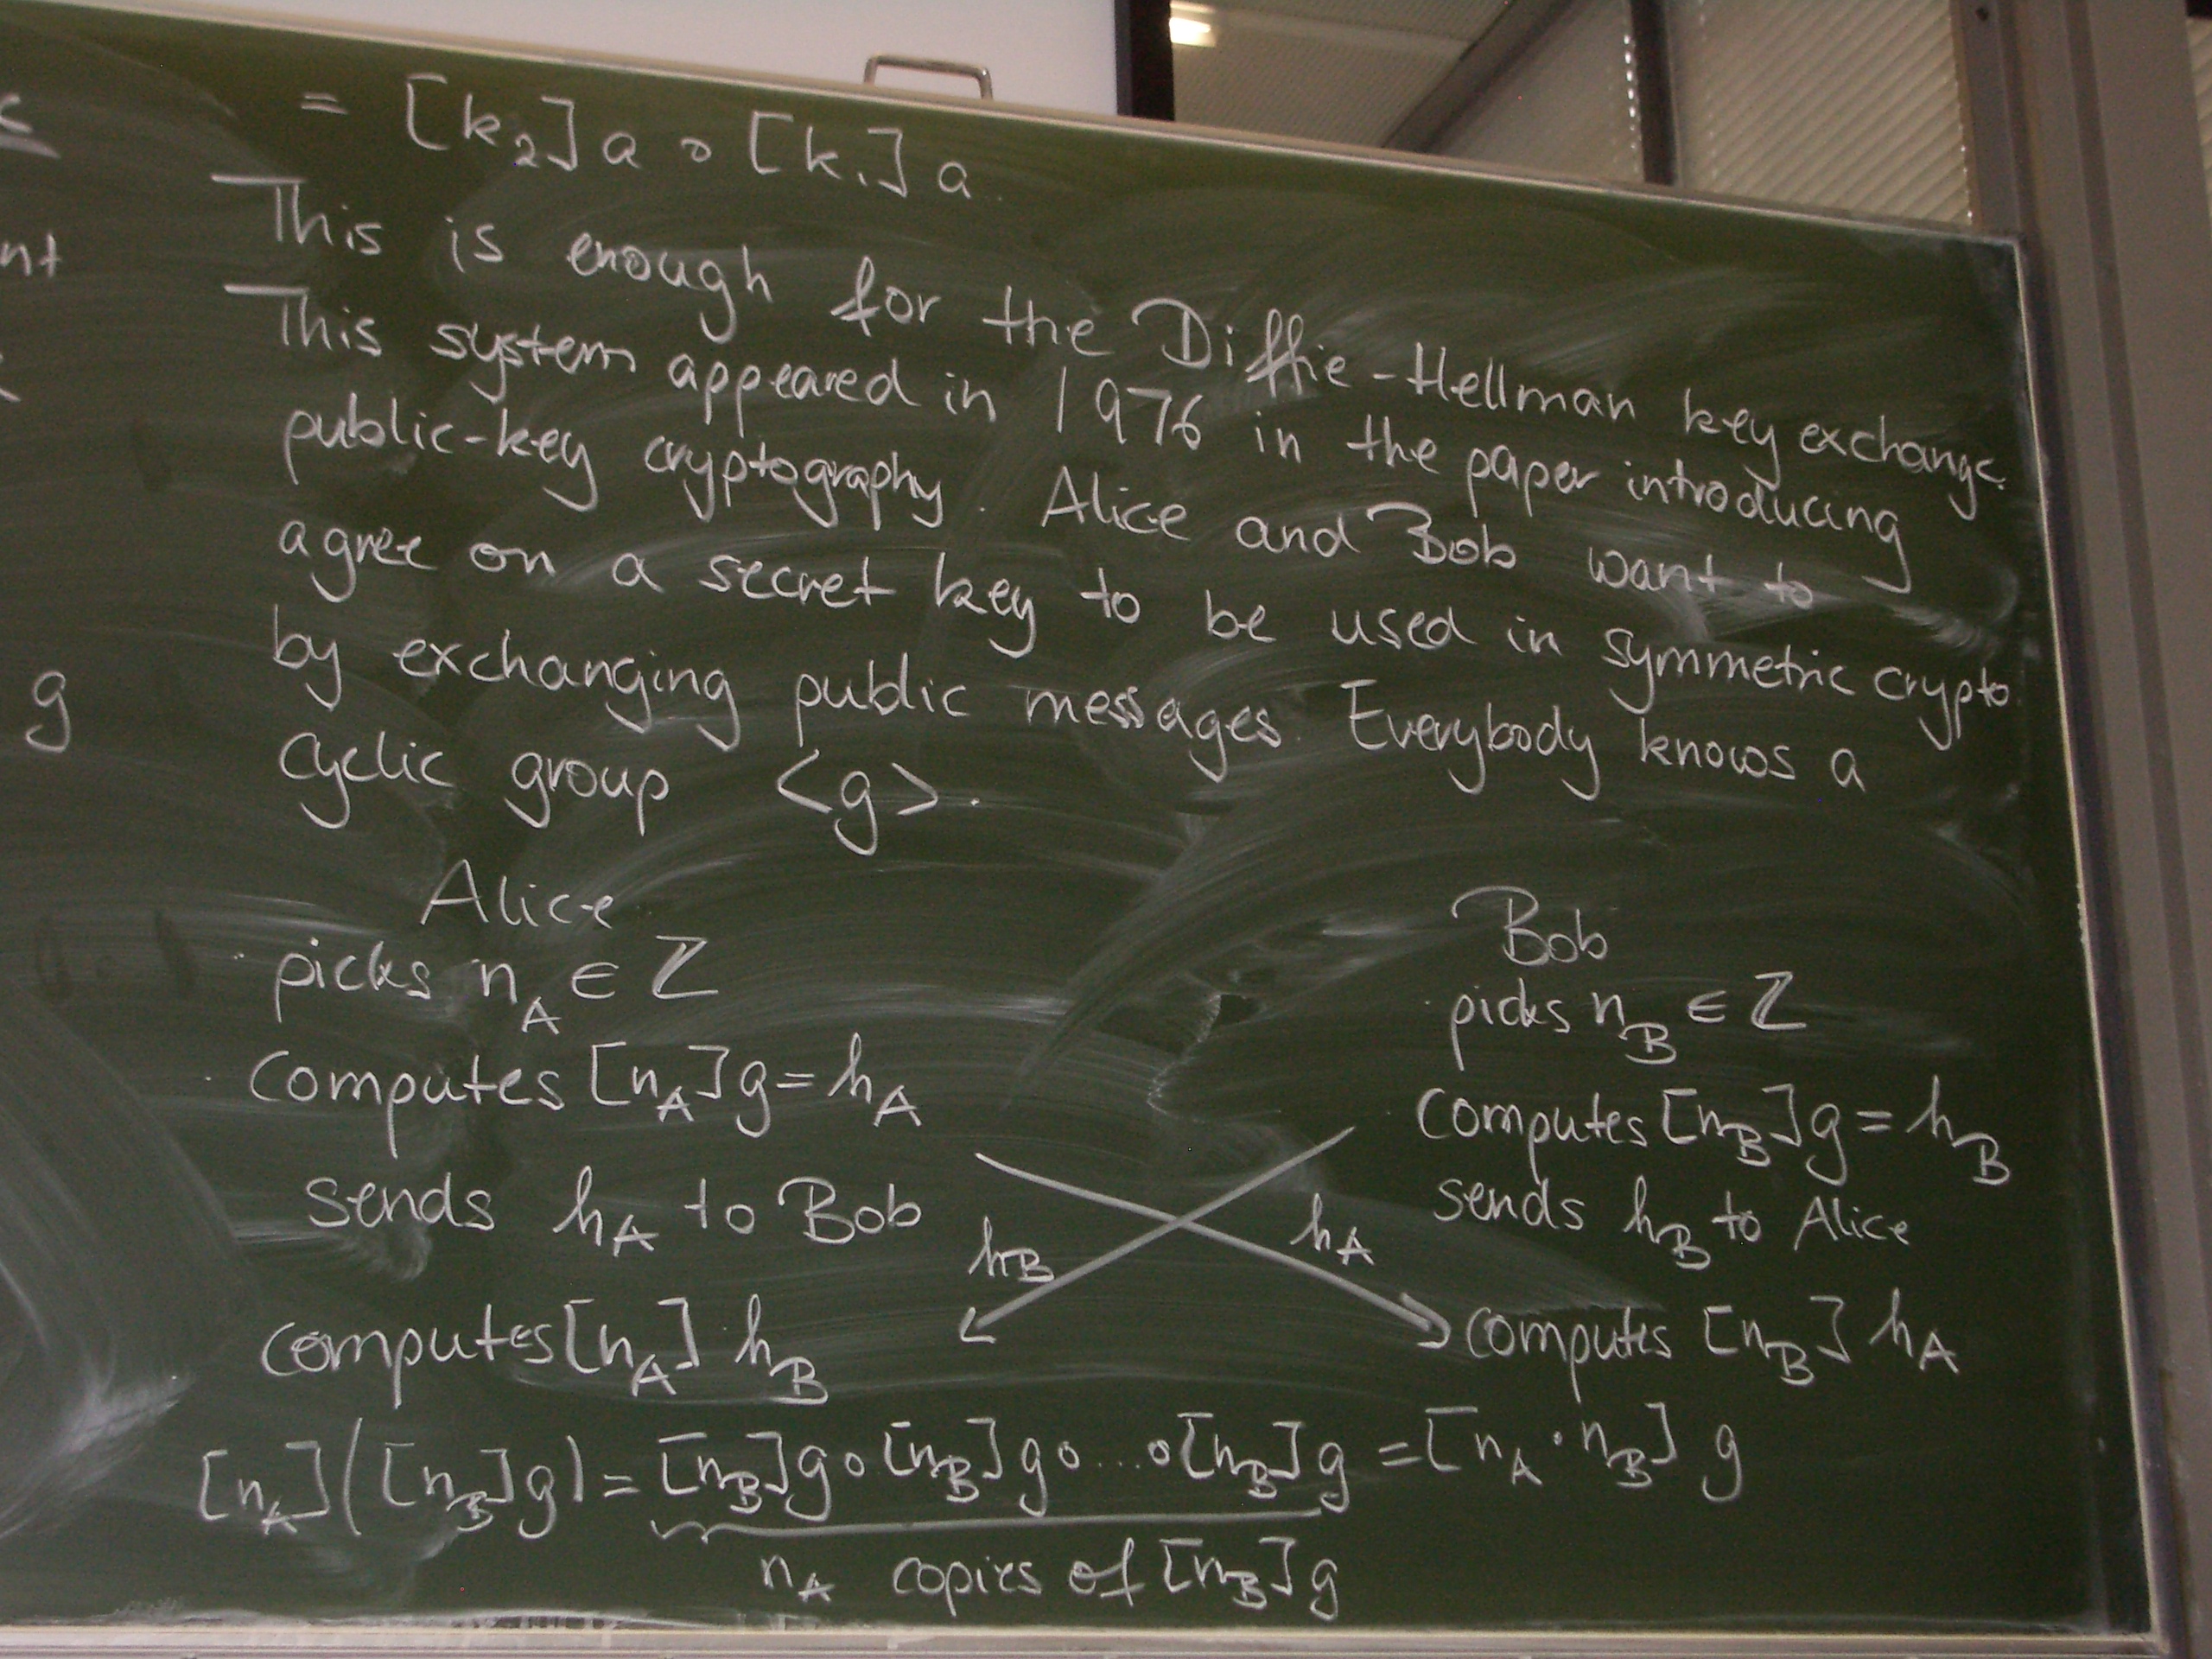 = [k₂]a ∘ [k₁]a.
This is enough for the Diffie-Hellman key exchange.
This system appeared in 1976 in the paper introducing
public-key cryptography. Alice and Bob want to
agree on a secret key to be used in symmetric crypto
by exchanging public messages. Everybody knows a
g
cyclic group <g>.
Alice
Bob
picks n_A ∈ Z
picks n_B ∈ Z
computes [n_A]g = h_A
computes [n_B]g = h_B
sends h_A to Bob
sends h_B to Alice
h_B
h_A
computes [n_A] h_B
computes [n_B] h_A
[n_A]([n_B]g) = [n_B]g ∘ [n_B]g ∘ ... ∘ [n_B]g = [n_A · n_B] g
n_A copies of [n_B]g